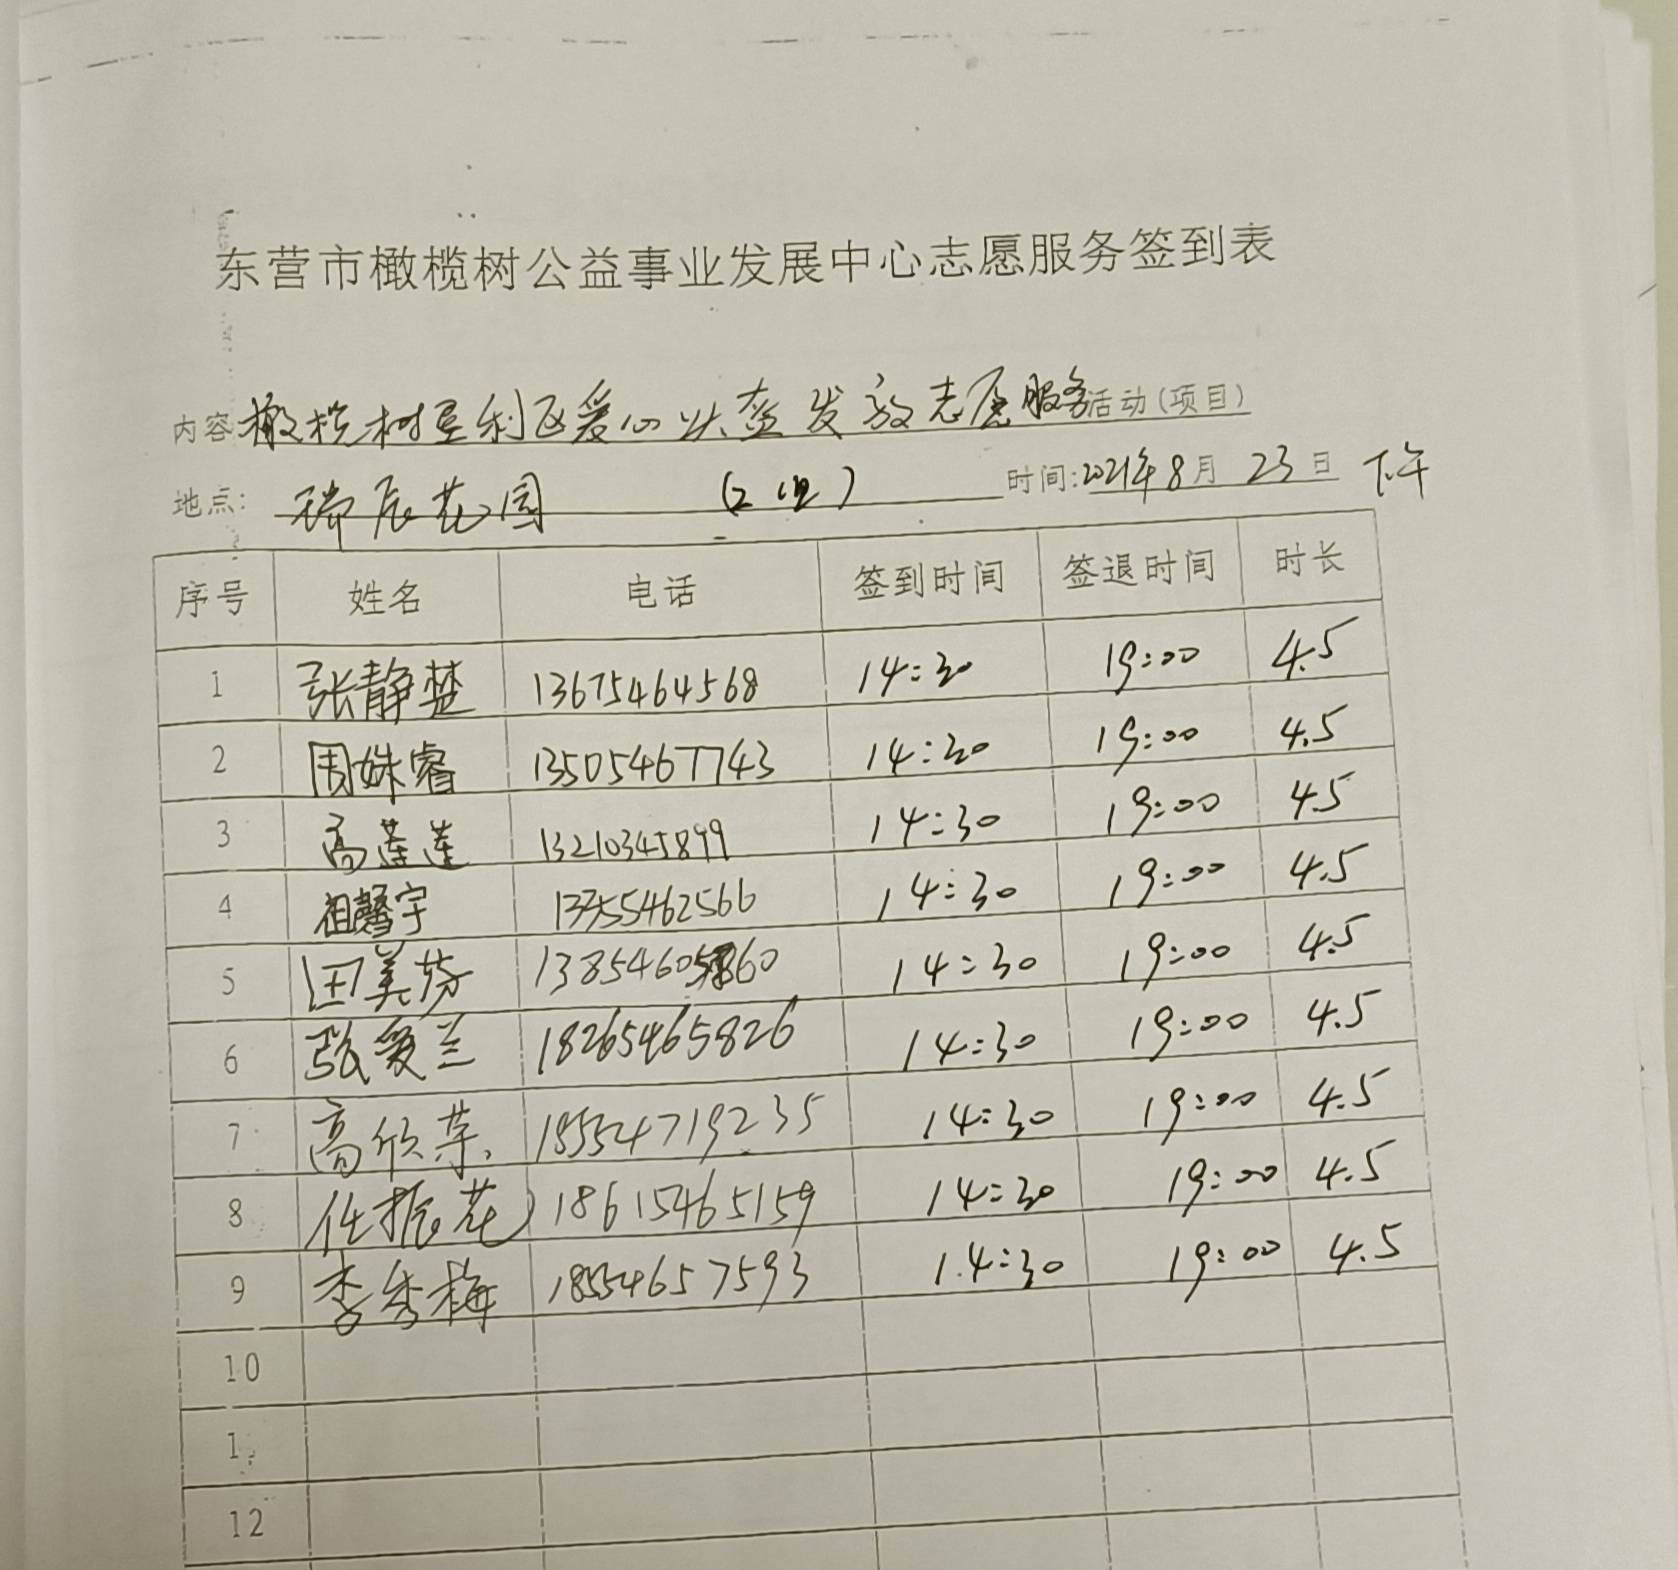 东营市橄榄树公益事业发展中心志愿服务签到表
内容:橄榄树垦利区爱心头盔发放志愿服务活动(项目)
地点: 瑞辰花园 (2组) 时间:2021年8月23日 下午
序号 姓名 电话 签到时间 签退时间 时长
1 张静楚 13675464568 14:30 19:00 4.5
2 周姝睿 13505467743 14:30 19:00 4.5
3 高莲莲 13210345899 14:30 19:00 4.5
4 祖馨宇 14:30 19:00 4.5
5 田美芬 14:30 19:00 4.5
6 张爱兰 18265465826 14:30 19:00 4.5
7 高欣荣 18554719235 14:30 19:00 4.5
8 任振花 18615465159 14:30 19:00 4.5
9 李秀梅 18554657593 14:30 19:00 4.5
10
12